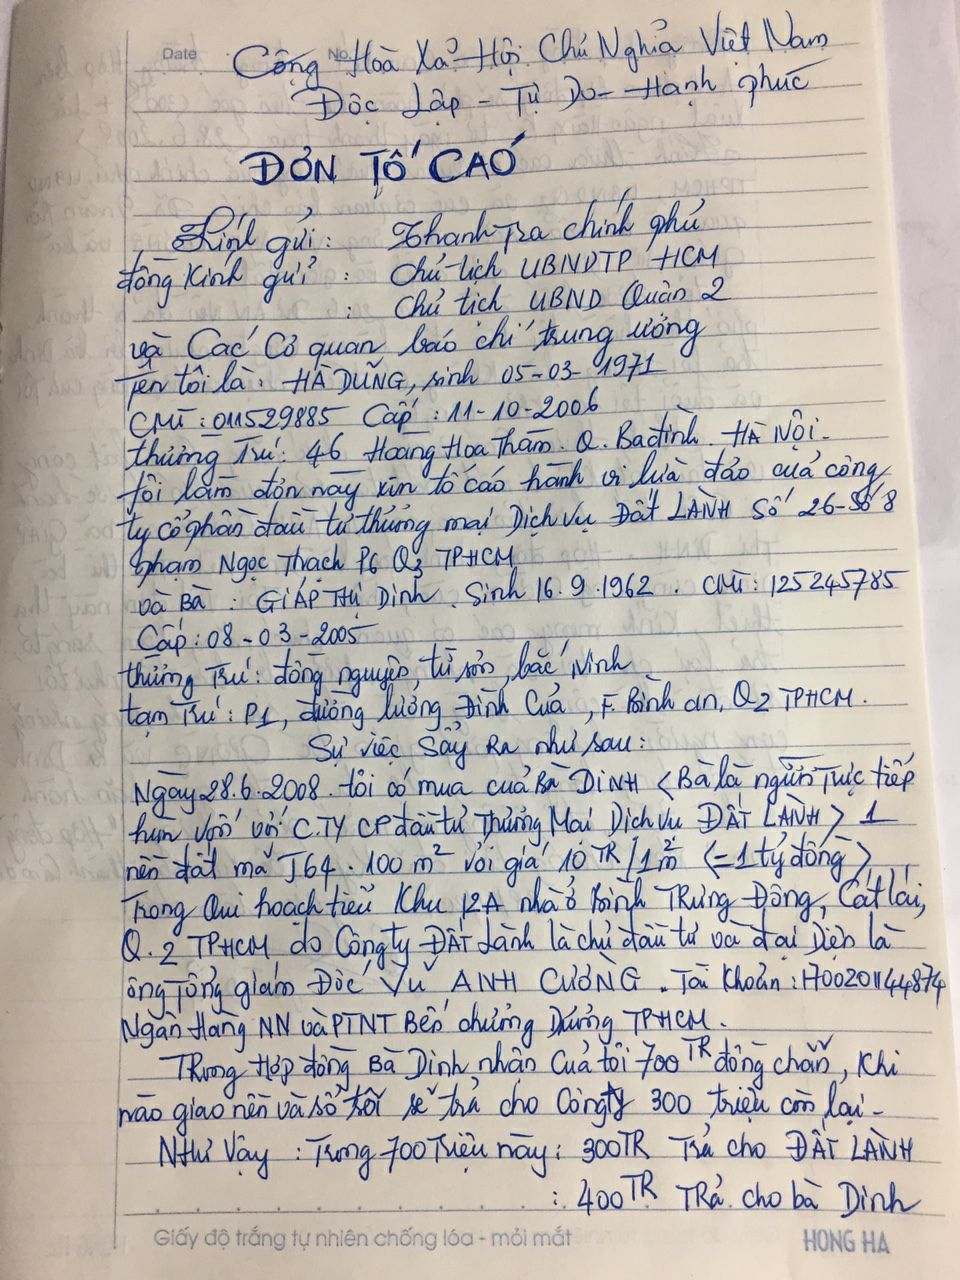 Date No.
Cộng Hoà Xả Hội Chủ Nghỉa Việt Nam
Độc Lập - Tự Do - Hạnh phúc
ĐƠN TỐ CAÓ
Kính gửi : Thanh Tra chính phủ
đồng Kính gửi : Chủ tịch UBNDTP HCM
: Chủ tịch UBND Quận 2
và Các Cơ quan báo chí trung ương
Tên tôi là : HÀ DŨNG, sinh 05-03-1971
CMT : 011529885 Cấp : 11-10-2006
thường Trú : 46 Hoang Hoa Thám . Q. Ba đình . HÀ NỘi -
tôi làm đơn này xin tố cáo hành vi lừa đảo của công
ty cổ phần đầu tư thương mại Dịch Vụ Đất LÀNH Số 26-Số 8
phạm Ngọc Thạch P6 Q3 TPHCM
và Bà : GIÁP THỊ Dinh . Sinh 16.9.1962 . CMT : 125245785
Cấp : 08-03-2005
thường Trú : đồng nguyên, từ sơn, bắc Ninh
tạm Trú : P1, đường lương Đình Của, F. Bình an, Q2 TPHCM.
Sự việc Sẩy Ra như sau :
Ngày 28.6.2008 tôi có mua của Bà DINH < Bà là người Trực tiếp
hùn vốn với C.TY CP đầu tư Thương Mại Dịch Vụ ĐẤT LÀNH > 1
nền đất mã J64 . 100 m² với giá 10 TR/1m² (= 1 tỷ đồng)
Trong Qui hoạch tiểu Khu 12A nhà ở Bình Trưng Đông, Cát lái,
Q. 2 TPHCM do Công ty ĐẤT Lành là chủ đầu tư và đại Diện là
ông Tổng giám Đốc VŨ ANH CƯỜNG . Tài Khoản : 1700201144874
Ngân Hàng NN và PTNT Bến chương Dương TPHCM.
Trong Hợp đồng Bà Dinh nhận Của tôi 700 TR đồng chẵn, Khi
nào giao nền và sổ tôi sẽ trả cho Công ty 300 triệu còn lại -
NHư Vậy : Trong 700 Triệu này : 300TR Trả cho ĐẤT LÀNH
: 400TR TRả cho bà Dinh
Giấy độ trắng tự nhiên chống lóa - mỏi mắt HONG HA